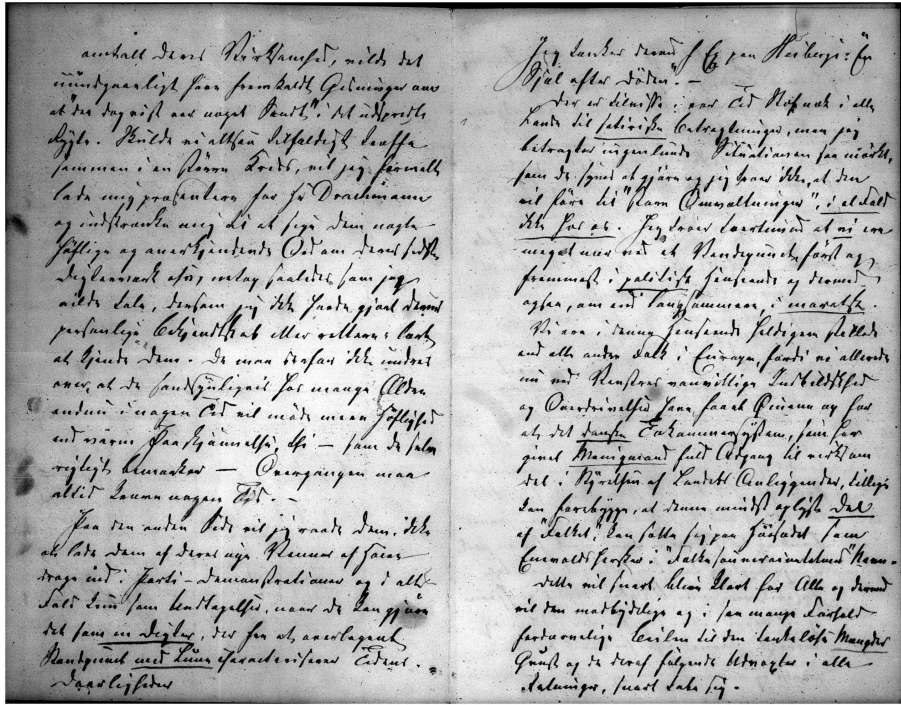 omtalt deres Virksomhed, vilde det
uundgaaeligt have fremkaldt Gisninger om
at "der dog vist var noget Sandt" i det udspredte
Rygte. Skulde vi altsaa tilfældigt træffe
sammen i en større Kreds, vil jeg formelt
lade mig præsentere for Hr Drachmann
og indskrænke mig til at sige Dem nogle
høflige og anerkjendende Ord om deres sidste
Digterværk osv, netop saaledes som jeg
vilde tale, dersom jeg ikke havde gjort Deres
personlige Bekjendtskab eller rettere: lært
at kjende Dem. De maa derfor ikke undres
over, at De sandsynligvis hos mange Ældre
endnu i nogen Tid vil møde mere Høflighed
end varm Paaskjønnelse, thi — som De selv
rigtigt bemærker — Overgangen maa
altid kræve nogen Tid. —
Paa den anden Side vil jeg raade Dem, ikke
at lade Dem af deres nye Venner af Høire
drage ind i Parti-Demonstrationer og i alt
Fald kun som Undtagelse, naar De kan gjøre
det som en Digter, der fra et overlegent
Standpunct med Lune characteriserer Tidens
Daarligheder
Jeg tænker derved f Ex paa Heibergs: "En
Sjæl efter Døden". —
Der er tilvisse i vor Tid Stof nok i alle
Lande til satiriske Betragtninger, men jeg
betragter ingenlunde Situationen saa mørkt,
som De synes at gjøre og jeg troer ikke, at den
vil føre til "store Omvæltninger", i al Fald
ikke hos os. Jeg troer tvertimod at vi ere
meget nær ved et Vendepunct, først og
fremmest i politisk Henseende og derved
ogsaa, om end langsommere, i moralsk.
Vi ere i denne Henseende heldigere stillede
end alle andre Folk i Europa, fordi vi allerede
nu ved Venstres vanvittige Indbildskhed
og Overdrivelser have faaet Øinene op for
at det danske Tokammersystem, som har
givet Menigmand fuld Adgang til virksom
Del i Styrelsen af Landets Anliggender, tillige
kan forebygge, at denne mindst oplyste Del
af "Folket" kan sætte sig paa Høisædet som
Enevoldshersker i "Folkesouverainitetens" Navn.
Dette vil snart blive klart for Alle og derved
vil den modbydelige og i saa mange Forhold
fordærvelige Beilen til den tankeløse Mængdes
Gunst og de deraf følgende Udvexter i alle
Retninger, snart tabe sig.